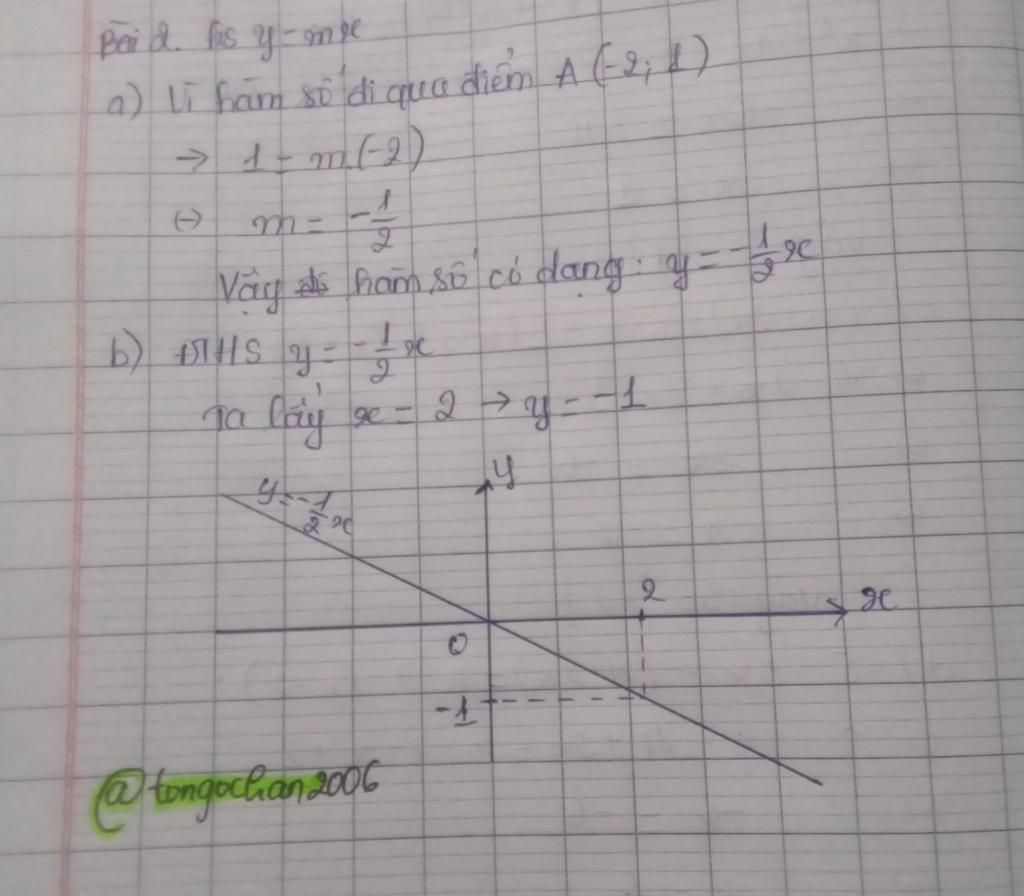 Bài 2. hs y = mx
a) Vì hàm số đi qua điểm A (-2; 1)
→ 1 = m.(-2)
(-) m = -1/2
Vậy hàm số có dạng: y = -1/2 x
b) ĐTHS y = -1/2 x
Ta lấy x = 2 → y = -1
y
y = -1/2 x
2
x
O
-1
@tongochan2006